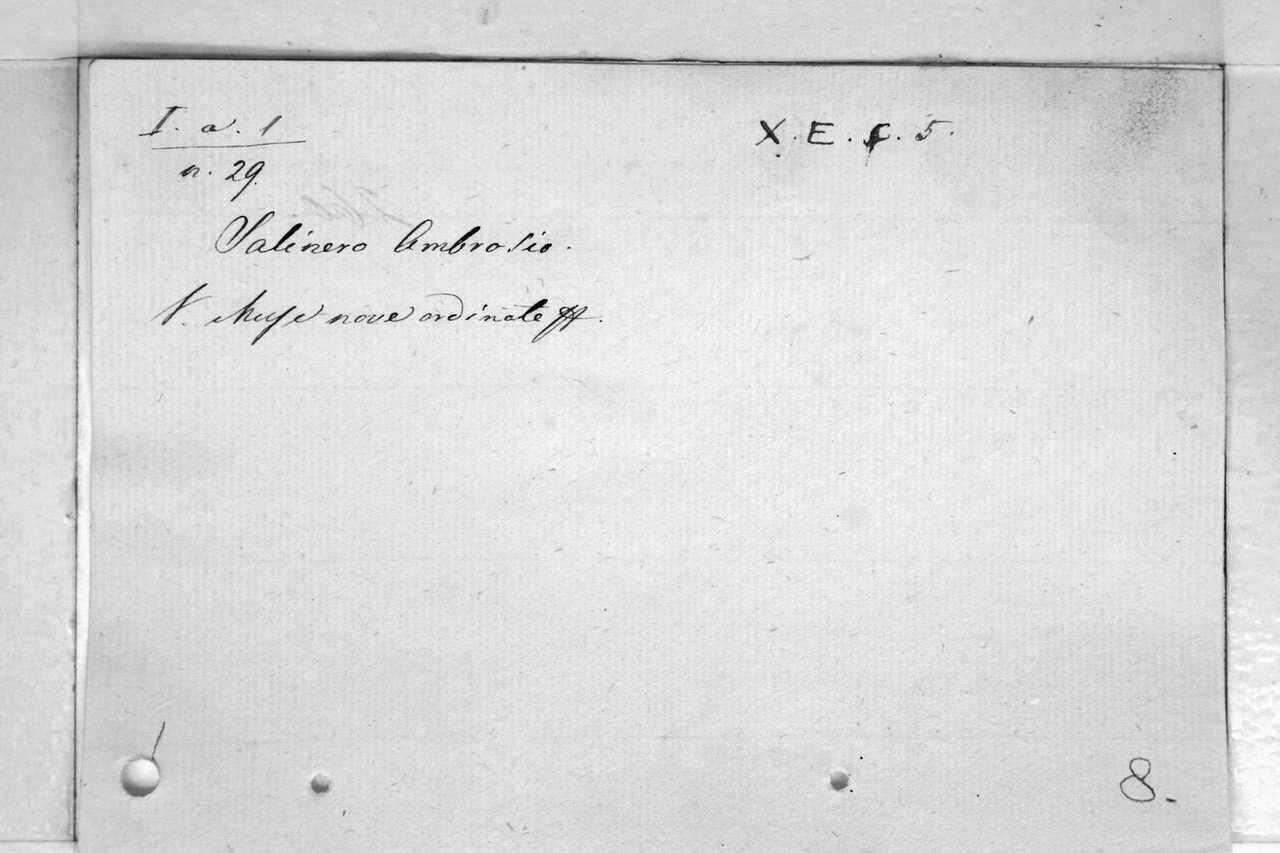 I. a. 1
X. E. f. 5.
n. 29.
Salinero Ambrosio.
V. Muse nove ordinate
8.